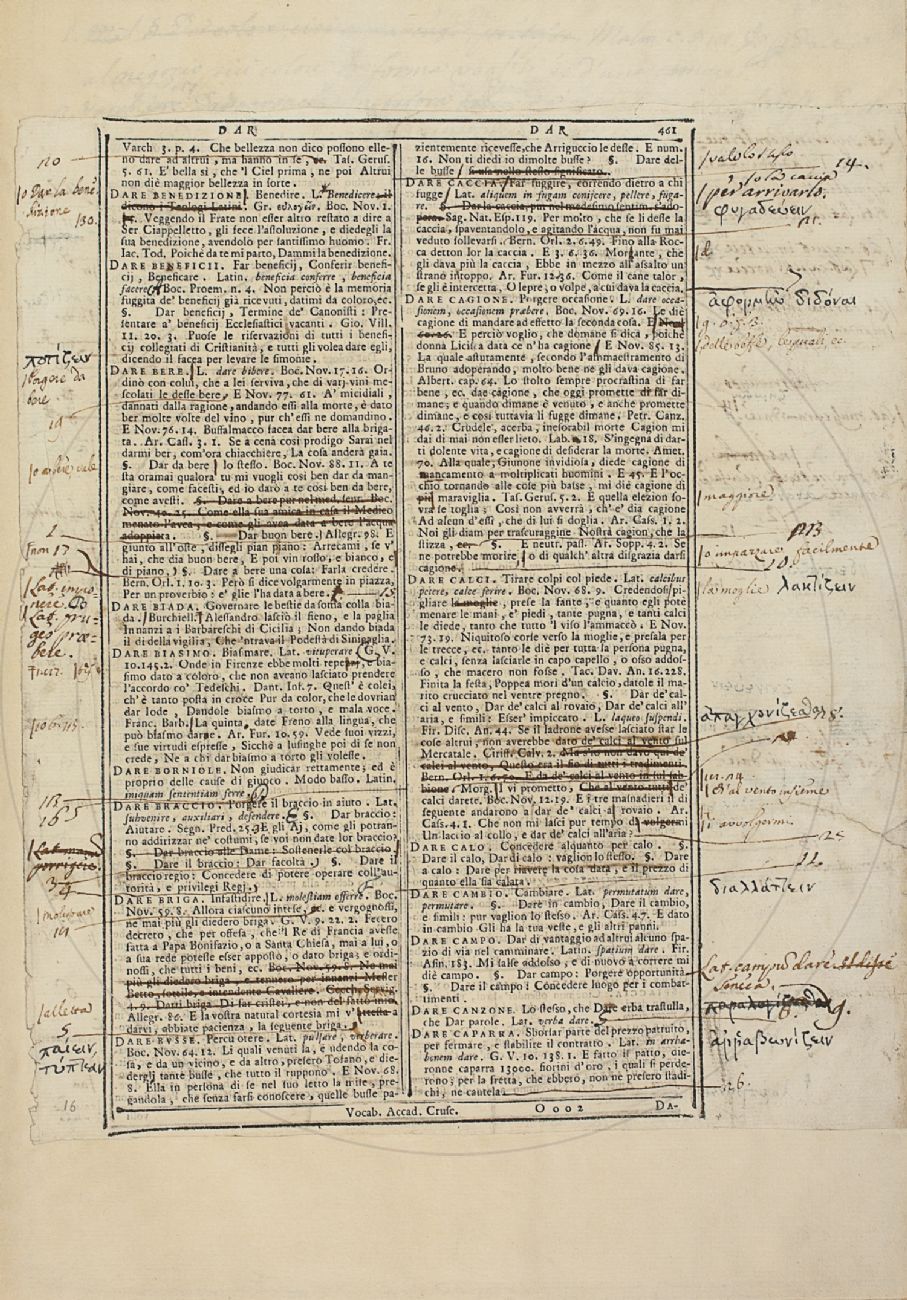 DAR DAR 461
Varch 3. p. 4. Che bellezza non dico possono elle-
no dare ad altrui, ma hanno in se, Tas. Gerus.
5. 61. E' bella sì, che 'l Ciel prima, ne poi Altrui
non diè maggior bellezza in sorte.
DARE BENEDIZIONE. Benedire. L. Benedicere il
dicono i Teologi Latini. Gr. Boc. Nov. 1.
Veggendo il Frate non esser altro restato a dire a
Ser Ciappelletto, gli fece l'assoluzione, e diedegli la
sua benedizione, avendolo per santissimo huomo. Fr.
Iac. Tod. Poichè da te mi parto, Dammi la benedizione.
DARE BENEFICII. Far beneficij, Conferir benefi-
cij, Beneficare. Latin. beneficia conferre, beneficia
facere. Boc. Proem. n. 4. Non perciò è la memoria
fuggita de' beneficij già ricevuti, datimi da coloro, ec.
§. Dar beneficij, Termine de' Canonisti: Pre-
sentare a' beneficij Ecclesiastici vacanti. Gio. Vill.
11. 20. 3. Puose le riservazioni di tutti i benefi-
cij collegiati di Cristianità, e tutti gli volea dare egli,
dicendo il facea per levare le simonie.
DARE BERE. L. dare bibere. Boc. Nov. 17. 16. Or-
dinò con colui, che a lei serviva, che di varj vini me-
scolati le desse bere, E Nov. 77. 61. A' micidiali,
dannati dalla ragione, andando essi alla morte, è dato
ber molte volte del vino, pur ch'essi ne domandino.
E Nov. 76. 14. Buffalmacco facea dar bere alla briga-
ta. Ar. Cass. 3. 1. Se a cena così prodigo Sarai nel
darmi ber, com'ora chiacchiere, La cosa anderà gaia.
§. Dar da bere lo stesso. Boc. Nov. 88. 11. A te
sta oramai qualora tu mi vuogli così ben dar da man-
giare, come facesti, ed io darò a te così ben da bere,
come avesti. §. Dare a bere pur nel med. sent. Boc.
Nov. 40. 25. Come ella sua amica in casa il Medico
menato l'avea, e come gli avea data a bere l'acqua
adoppiata. §. Dar buon bere. Allegr. 98. E
giunto all'oste, dissegli pian piano: Arrecami, se v'
hai, che dia buon bere, E poi vin rosso, e bianco, e
di piano. §. Dare a bere una cosa: Farla credere.
Bern. Orl. 1. 10. 3. Però si dice volgarmente in piazza,
Per un proverbio: e' glie l'ha data a bere.
DARE BIADA. Governare le bestie da soma colla bia-
da. Burchiell. Alessandro lasciò il fieno, e la paglia
Innanzi a i Barbareschi di Cicilia; Non dando biada
il dì della vigilia, Che 'ntrava il Podestà di Sinigaglia.
DARE BIASIMO. Biasmare. Lat. vituperare G. V.
10. 145. 2. Onde in Firenze ebbe molti repetij, e bia-
simo dato a coloro, che non aveano lasciato prendere
l'accordo co' Tedeschi. Dant. Inf. 7. Quest' è colei,
ch' è tanto posta in croce Pur da color, che le dovrian
dar lode, Dandole biasmo a torto, e mala voce.
Franc. Barb. La quinta date Freno alla lingua, che
può biasmo darne. Ar. Fur. 10. 59. Vede suoi vizzi,
e sue virtudi espresse, Sicchè a lusinghe poi di se non
crede, Ne a chi dar biasmo a torto gli volesse.
DARE BORNIOLE. Non giudicar rettamente; ed è
proprio delle cause di giuoco. Modo basso. Latin.
iniquam sententiam ferre.
DARE BRACCIO. Porgere il braccio in aiuto. Lat.
subvenire, auxiliari, defendere. §. Dar braccio:
Aiutare. Segn. Pred. E gli Aj, come gli potran-
no addirizzar ne' costumi, se voi non date lor braccio?
§. Dar braccio alle Dame: Sostenerle col braccio
§. Dare il braccio: Dar facoltà. §. Dare il
braccio regio: Concedere di potere operare coll'au-
torità, e privilegi Regj.
DARE BRIGA. Infastidire. L. molestiam afferre. Boc.
Nov. 59. 8. Allora ciascuno intese, e vergognossi,
ne mai più gli diedero briga. G. V. 9. 22. 2. Fecero
decreto, che per offesa, che 'l Re di Francia avesse
fatta a Papa Bonifazio, o a Santa Chiesa, mai a lui, o
a sua rede potesse esser apposto, o dato briga; e ordi-
nossi, che tutti i beni, ec. Boc. Nov. 59. 8. Ne mai
più gli diedero briga, e tennero per innanzi Messer
Betto, sottile, e intendente Cavaliere.
4. 9. Datti briga Di far cristei, e non del fatto mio.
Allegr. 86. E la vostra natural cortesia mi v'alletta a
darvi, abbiate pacienza, la seguente briga.
DARE BUSSE. Percuotere. Lat. pulsare, verberare.
Boc. Nov. 64. 12. Li quali venuti là, e udendo la co-
sa, e da un vicino, e da altro, presero Tofano, e die-
dergli tante busse, che tutto il ruppono. E Nov. 68.
8. Ella in persona di se nel suo letto la mise, pre-
gandola, che senza farsi conoscere, quelle busse pa-
zientemente ricevesse, che Arriguccio le desse. E num.
16. Non ti diedi io dimolte busse? §. Dare del-
le busse si usa nello stesso significato.
DARE CACCIA. Far fuggire, correndo dietro a chi
fugge. Lat. aliquem in fugam conjicere, pellere, fuga-
re. §. Dar la caccia, pur nel medesimo sentim. l'ado-
pera. Sag. Nat. Esp. 119. Per molto, che se li desse la
caccia, spaventandolo, e agitando l'acqua, non fu mai
veduto sollevarsi. Bern. Orl. 2. 6. 49. Fino alla Roc-
ca detton lor la caccia. E 3. 6. 36. Morgante, che
gli dava più la caccia, Ebbe in mezzo all'assalto un'
strano intoppo. Ar. Fur. 12. 36. Come il cane talor,
se gli è intercetta, O lepre, o volpe, a cui dava la caccia.
DARE CAGIONE. Porgere occasione. L. dare occa-
sionem, occasionem præbere. Boc. Nov. 69. 16. Le diè
cagione di mandare ad effetto la seconda cosa. E Nov.
60. 26. E perciò voglio, che domane si dica, poichè
donna Licisca data ce n'ha cagione. E Nov. 85. 13.
La quale astutamente, secondo l'ammaestramento di
Bruno adoperando, molto bene ne gli dava cagione.
Albert. cap. 64. Lo stolto sempre procrastina di far
bene, ec. dae cagione, che oggi promette di far di-
mane, e quando dimane è venuto, e anche promette
dimane, e così tuttavia li fugge dimane. Petr. Canz.
46. 2. Crudele, acerba, inesorabil morte Cagion mi
dai di mai non esser lieto. Lab. 18. S'ingegna di dar-
ti dolente vita, e cagione di desiderar la morte. Amet.
70. Alla quale, Giunone invidiosa, diede cagione di
mancamento a moltiplicati huomini. E 45. E l'oc-
chio tornando alle cose più basse, mi diè cagione di
più maraviglia. Tas. Gerus. 5. 2. E quella elezion so-
vra se toglia; Così non avverrà, ch' e' dia cagione
Ad alcun d'essi, che di lui si doglia. Ar. Cass. 1. 2.
Noi gli diam per trascuraggine Nostra cagion, che la
stizza, E neutr. pass. Ar. Sopp. 4. 2. Se
ne potrebbe morire, o di qualch' altra disgrazia darsi
cagione.
DARE CALCI. Tirare colpi col piede. Lat. calcibus
petere, calce ferire. Boc. Nov. 68. 9. Credendosi pi-
gliare la moglie, prese la fante, e quanto egli potè
menare le mani, e' piedi, tante pugna, e tanti calci
le diede, tanto che tutto 'l viso l'ammaccò. E Nov.
73. 19. Niquitoso corse verso la moglie, e presala per
le trecce, ec. tanto le diè per tutta la persona pugna,
e calci, senza lasciarle in capo capello, o osso addos-
so, che macero non fosse. Tac. Dav. An. 16. 228.
Finita la festa, Poppea morì d'un calcio, datole il ma-
rito crucciato nel ventre pregno. §. Dar de' cal-
ci al vento, Dar de' calci al rovaio, Dar de' calci all'
aria, e simili: Esser' impiccato. L. laqueo suspendi.
Fir. Disc. An. 44. Se il ladrone avesse lasciato star le
cose altrui, non averebbe dato de' calci al vento sul
Mercatale. Ciriff. Calv. 2. Ma s'io non darò coi de'
calci al vento, Questo era il fio di tutti i tradimenti
Bern. Orl. 1. 6. 70. E da de' calci al vento in sul sab-
bione. Morg. vi prometto, Che al vento mille de'
calci darete. Boc. Nov. 12. 19. E i tre masnadieri il dì
seguente andarono a dar de' calci al rovaio. Ar.
Cass. 4. 1. Che non mi lasci pur tempo da volgermi
Un laccio al collo, e dar de' calci all'aria?
DARE CALO. Concedere alquanto per calo. §.
Dare il calo, Dar di calo: vagliono lo stesso. §. Dare
a calo: Dare per riavere la cosa data, e il prezzo di
quanto ella sia calata.
DARE CAMBIO. Cambiare. Lat. permutatum dare,
permutare. §. Dare in cambio, Dare il cambio,
e simili: pur vaglion lo stesso. Ar. Cass. 4. 7. E dato
in cambio Gli ha la tua veste, e gli altri panni.
DARE CAMPO. Dar di vantaggio ad altrui alcuno spa-
zio di via nel camminare. Latin. spatium dare. Fir.
Asin. 183. Mi fasse addosso, e di nuovo a correre mi
diè campo. §. Dar campo: Porgere opportunità.
§. Dare il campo: Concedere luogo per i combat-
timenti.
DARE CANZONE. Lo stesso, che Dare erba trastulla,
che Dar parole. Lat. verba dare.
DARE CAPARRA. Sborsar parte del prezzo patuito,
per fermare, e stabilire il contratto. Lat. in arrha-
bonem dare. G. V. 10. 138. 1. E fatto il patto, die-
ronne caparra 13000. fiorini d'oro, i quali si perde-
rono; per la fretta, che ebbero, non ne presero stadi-
chi, ne cautela.
Vocab. Accad. Crusc. O o o 2 DA-
ποτίζειν
19
Fnov 17
παίειν,
τύπτειν
16
14.
per arrivarlo.
φυγαδεύειν
ἀφορμὴν διδόναι
maggiore
facilmente
la moglie λακτίζειν
ἀπαγχονίζεσθαι
al vento insieme
avvolgermi
25
διαλλάττειν
Lat. campum dare
Seneca.
9.
ἀῤῥαβωνίζειν
26.